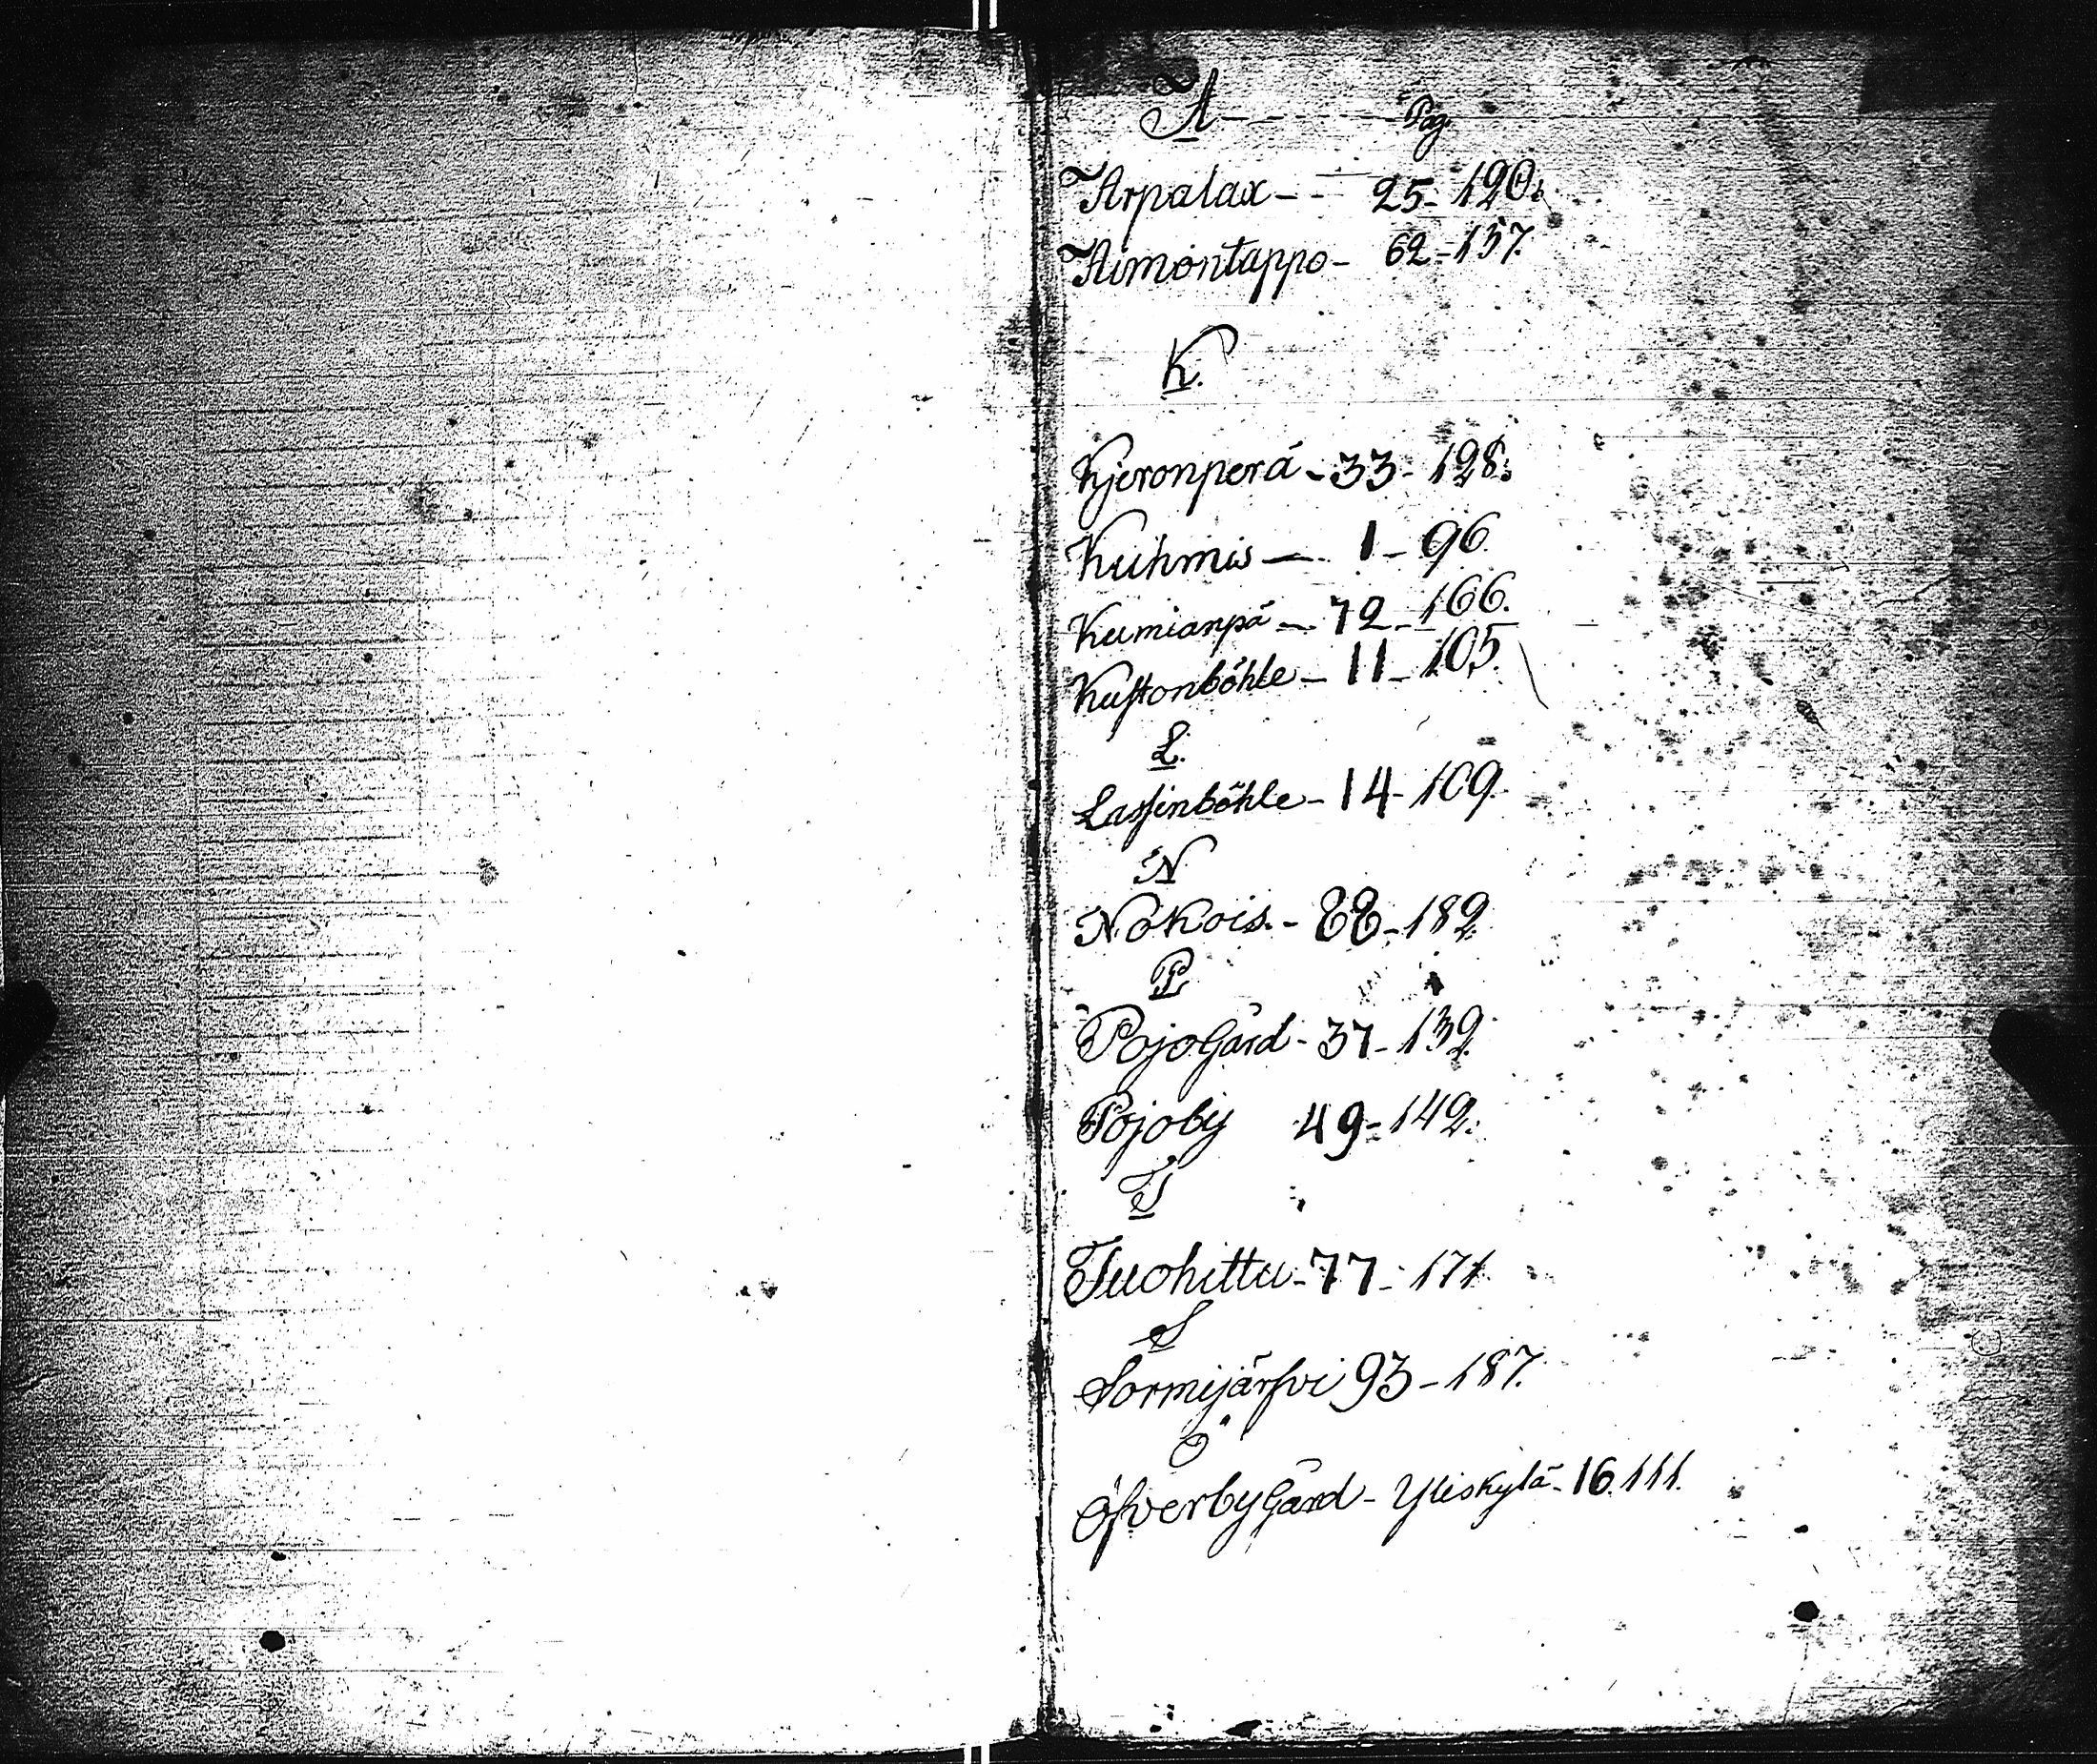 A - - - - - - Pag.
Arpalax - - 25 - 120.
Aimontappo - 62 - 157.
K.
Kjeronperä - 33 - 128.
Kuhmis - 1 - 96.
Kumianpä - 72 - 166.
Kustonböhle - 11 - 105.
L.
Lassinböhle - 14 - 109.
N
Nokois. - 88 - 182.
P
PojoGård - 37 - 132.
Pojoby 49 - 142.
T
Tuohittu - 77 - 171
S
Sormijärfvi 93 - 187.
Ö
ÖfverbyGård - Yliskylä - 16. 111.